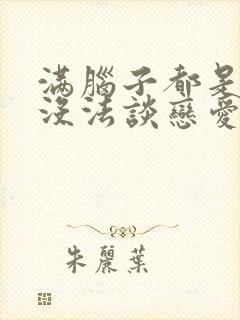 滿腦子都是
沒法談戀愛
朱麗葉